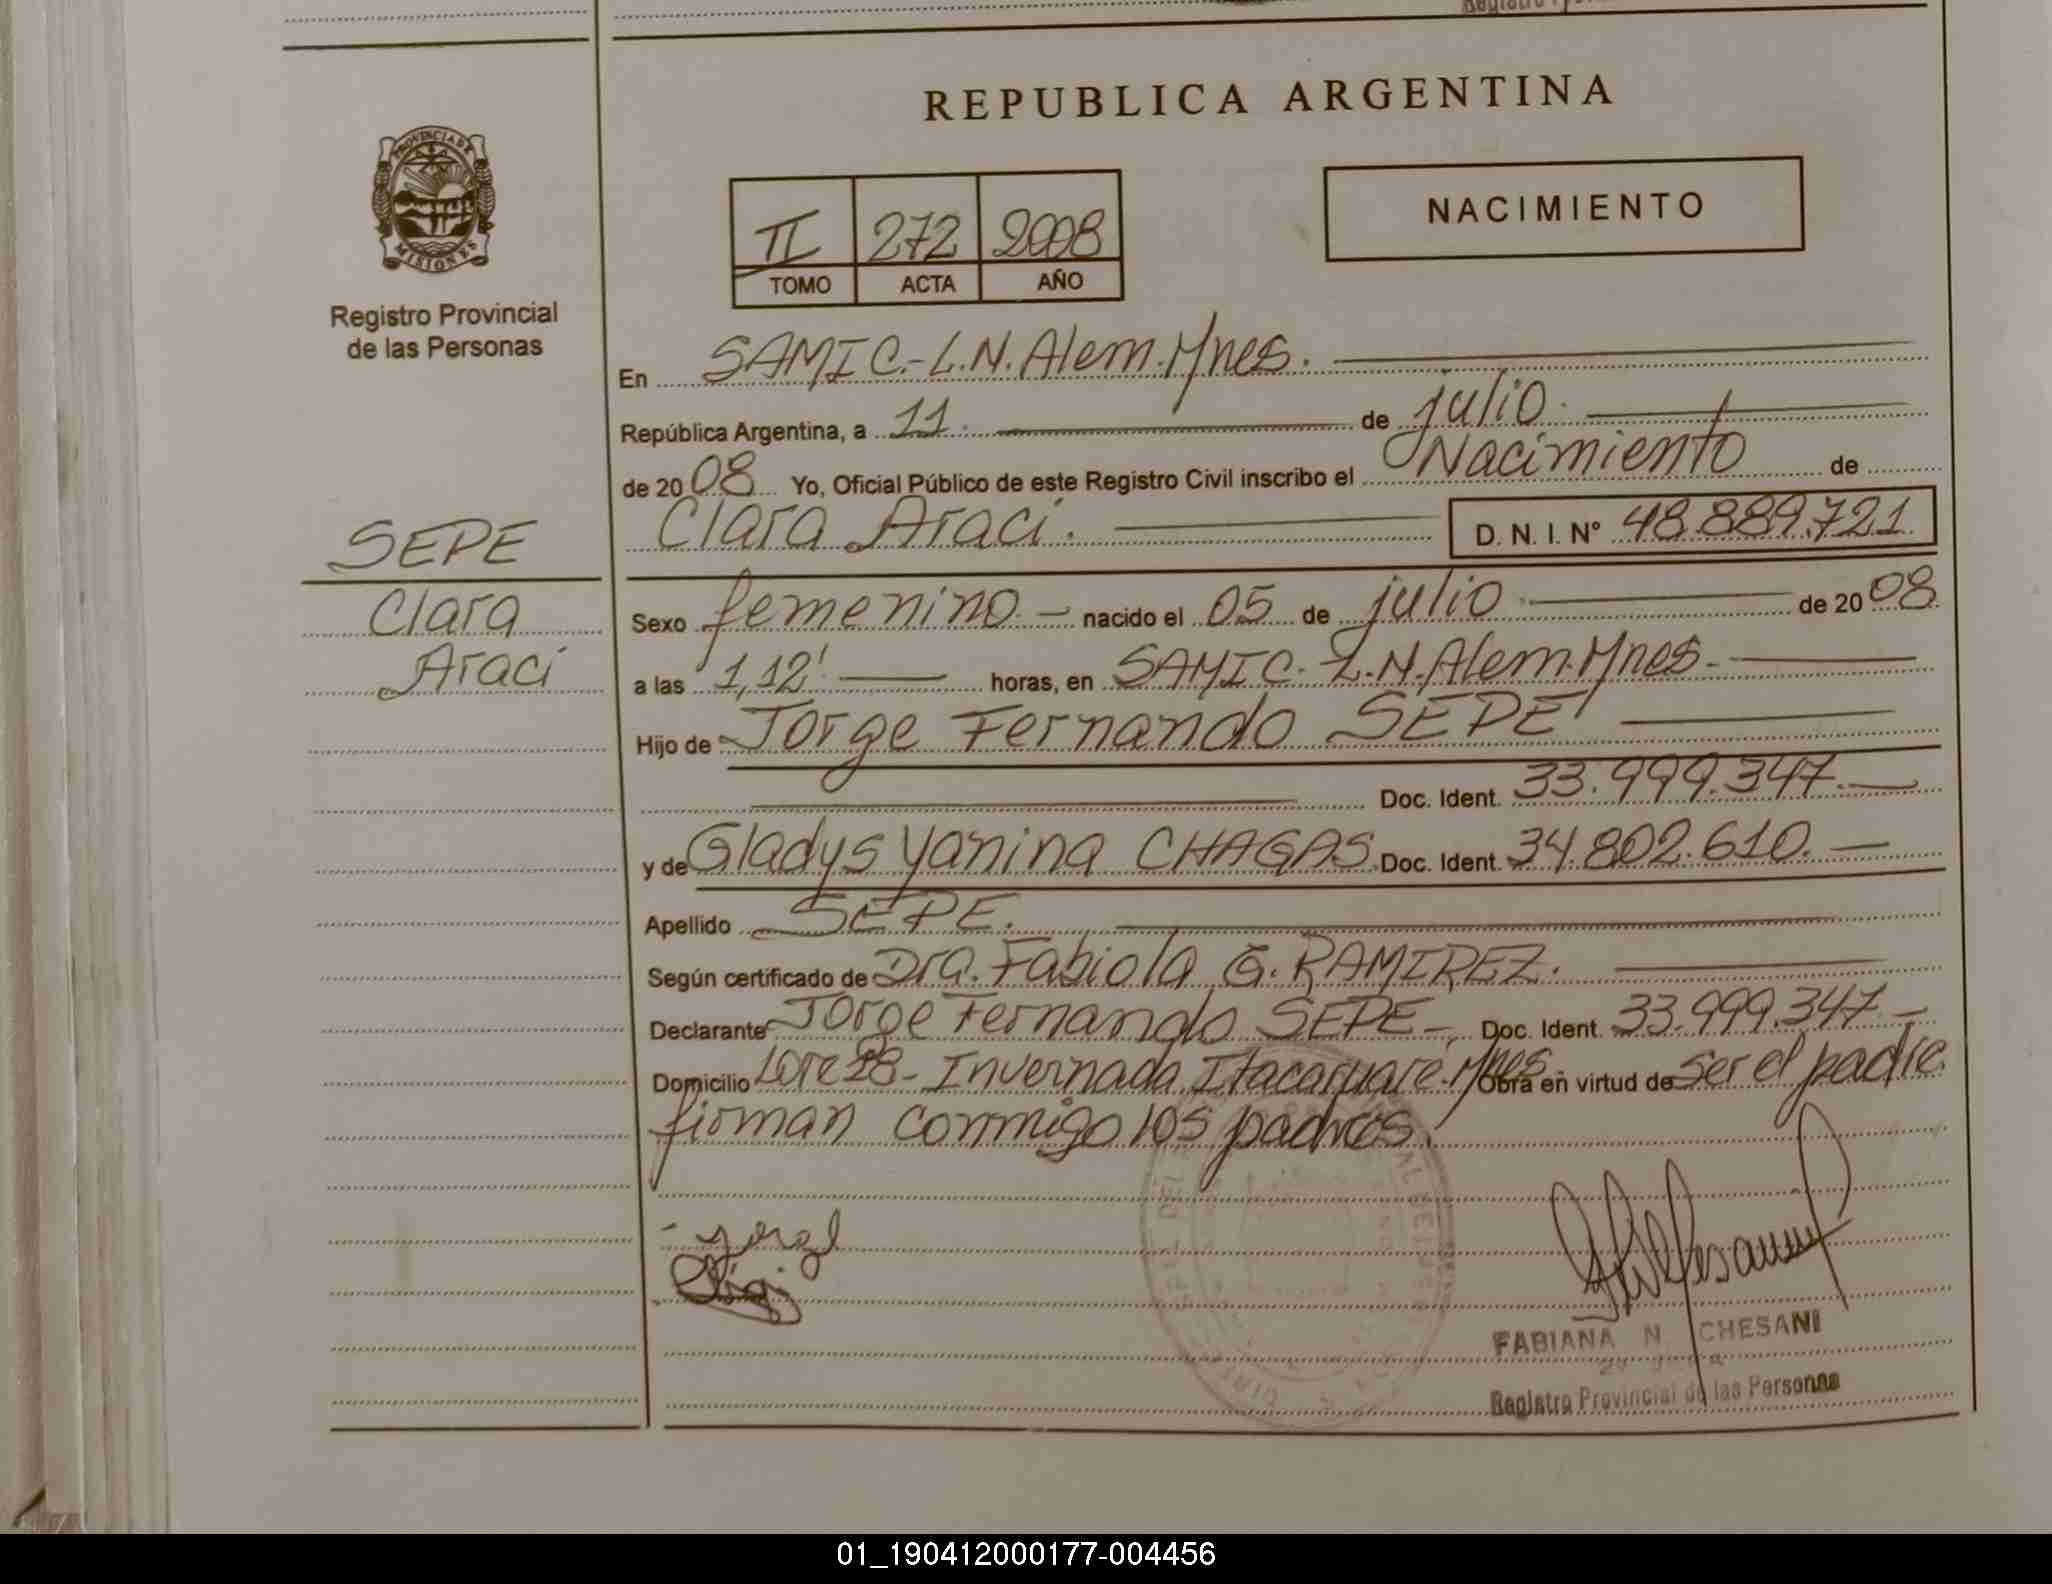 REPUBLICA ARGENTINA
PROVINCIA DE
MISIONES
Registro Provincial
de las Personas
II 272 2008
TOMO ACTA AÑO
NACIMIENTO
En SAMIC.-L.N.Alem.Mnes.
República Argentina, a 11. de julio.
de 2008 Yo, Oficial Público de este Registro Civil inscribo el Nacimiento de
Clara Araci. D. N. I. Nº 48.889.721
SEPE
Clara
Araci
Sexo femenino - nacido el 05 de julio de 2008
a las 1,12' horas, en SAMIC- L.N.Alem.Mnes-
Hijo de Jorge Fernando SEPE
Doc. Ident. 33.999.347.-
y de Gladys Yanina CHAGAS. Doc. Ident. 34.802.610.-
Apellido SEPE.
Según certificado de Dra. Fabiola G. RAMIREZ.
Declarante Jorge Fernando SEPE-, Doc. Ident. 33.999.347-
Domicilio Lote 28- Invernada Itacaruaré.Mnes Obra en virtud de ser el padre
firman conmigo los padres.
FABIANA N. CHESANI
Registro Provincial de las Personas
01_190412000177-004456